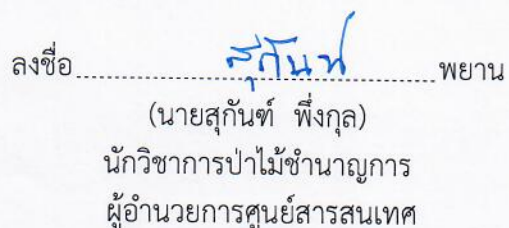 ลงชื่อ สุกันท์ พยาน
(นายสุกันฑ์ พึ่งกุล)
นักวิชาการป่าไม้ชำนาญการ
ผู้อำนวยการศูนย์สารสนเทศ